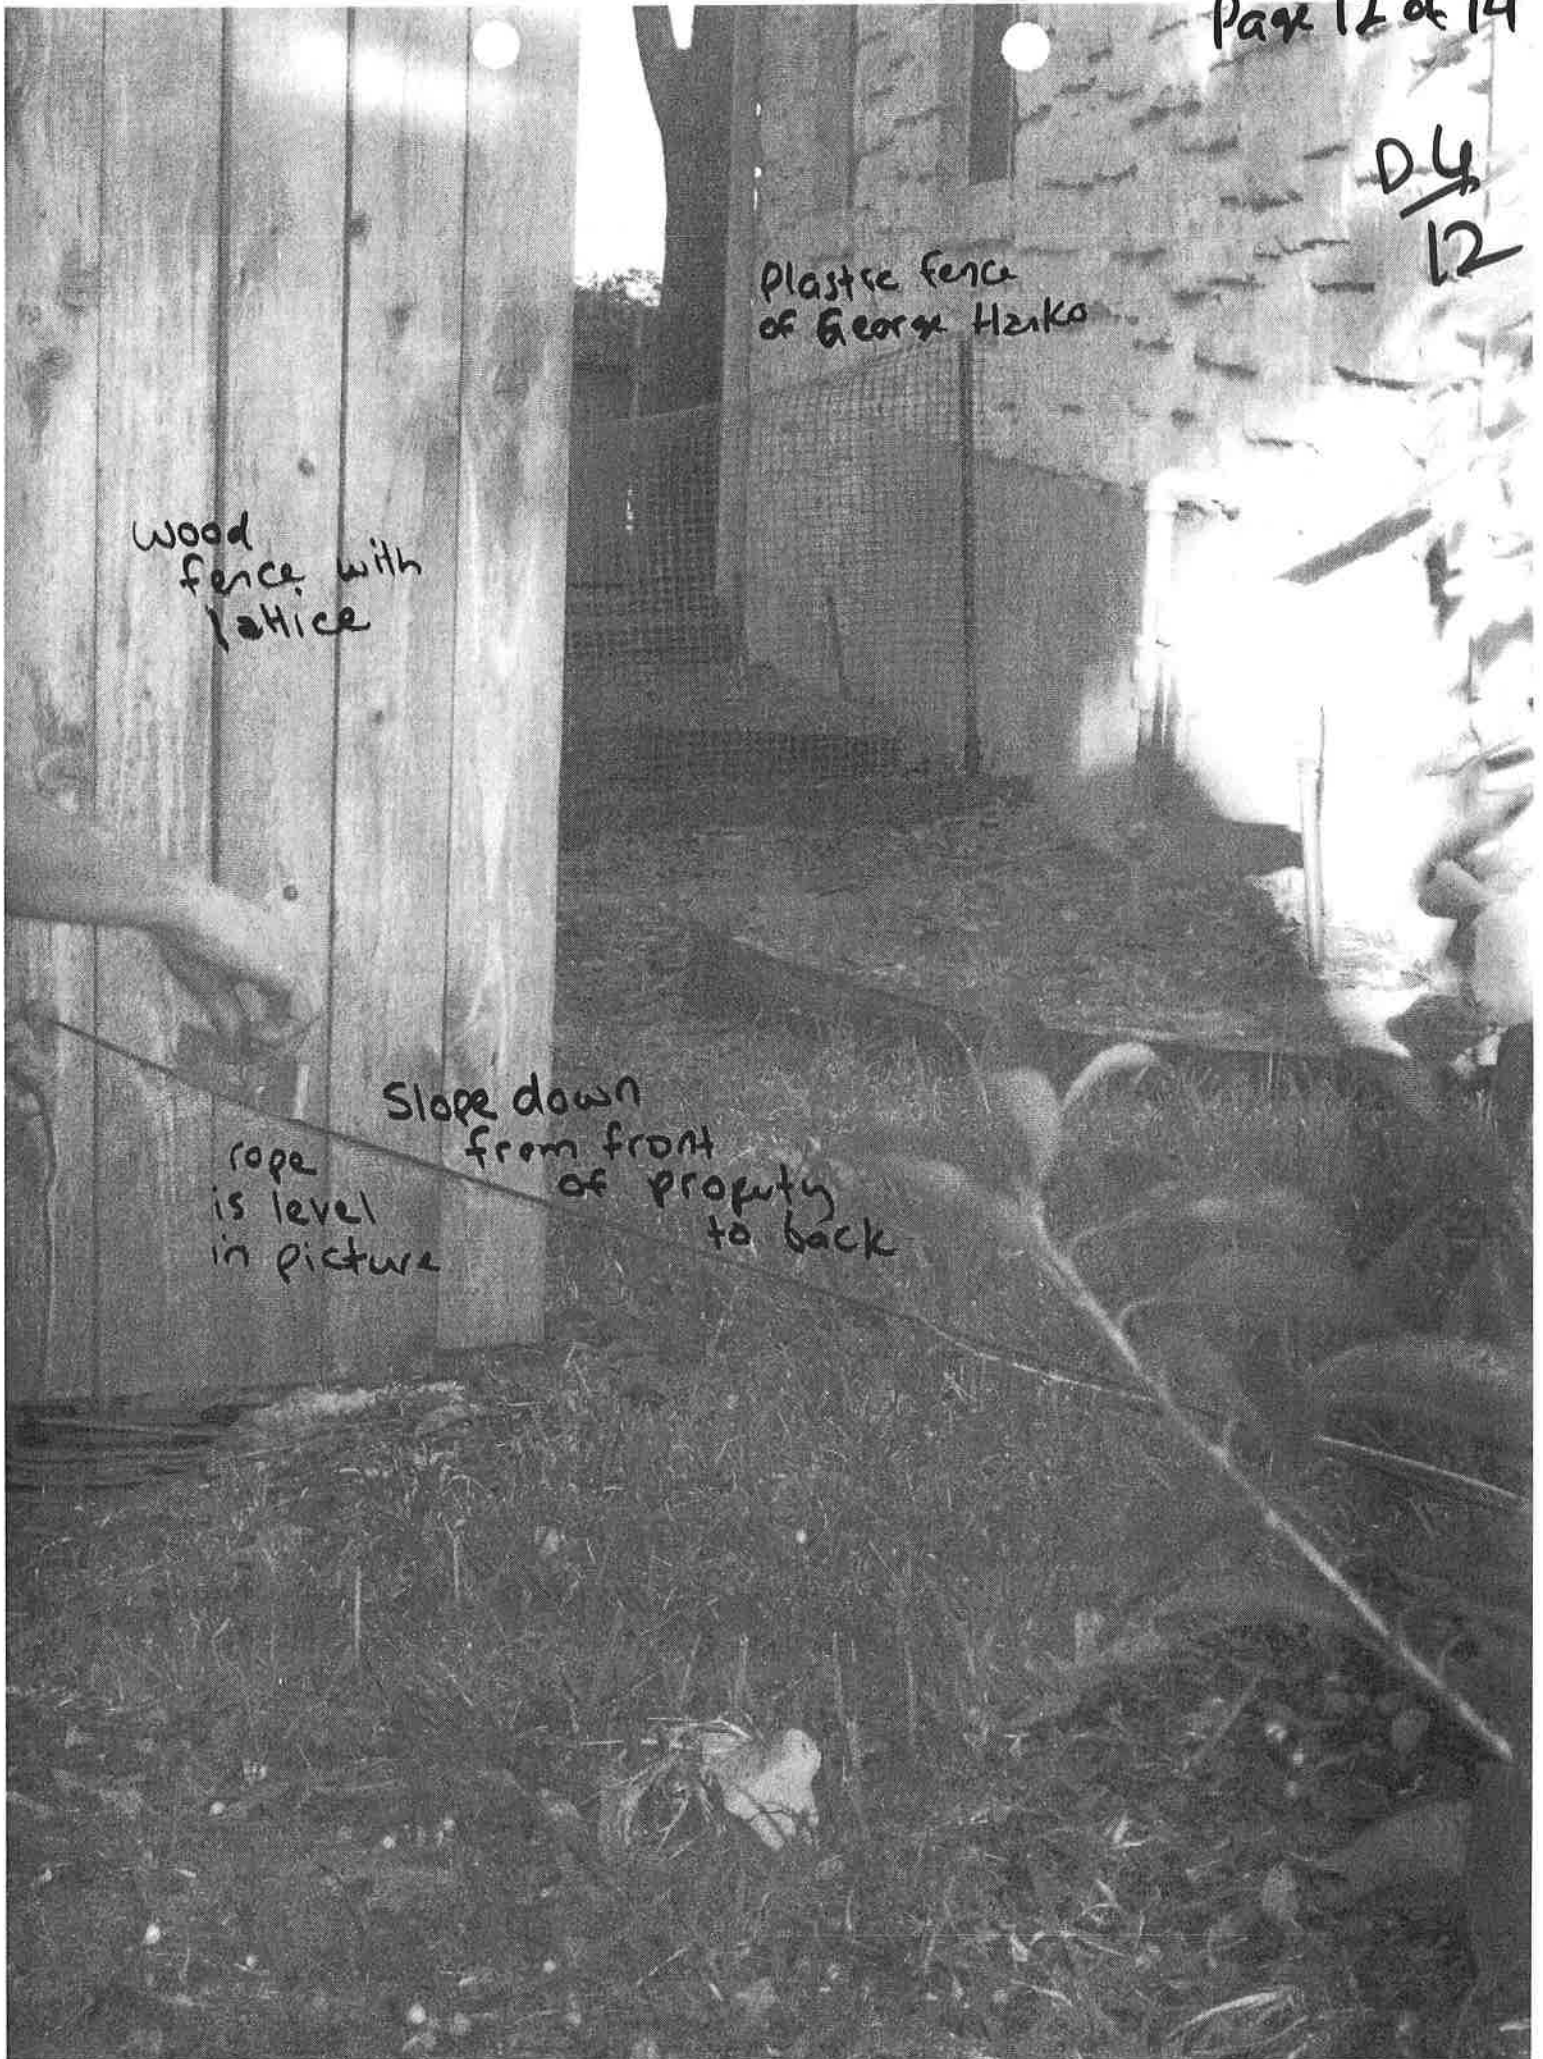 Page 12 of 14
D4
12
Plastic fence
of George Hanko
wood
fence with
lattice
Slope down
from front
of property
to back
rope
is level
in picture